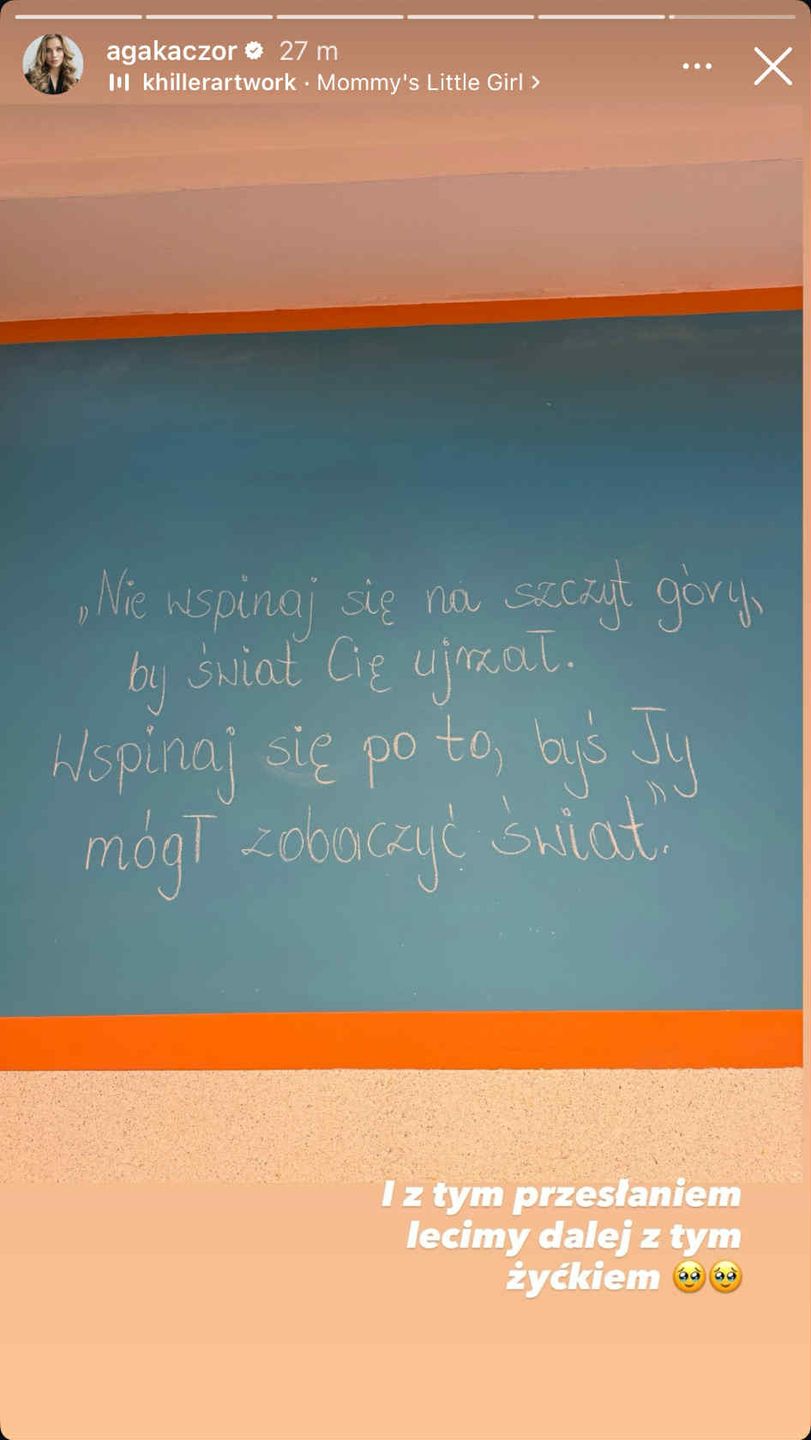 agakaczor 27 m
khillerartwork · Mommy's Little Girl >
„Nie wspinaj się na szczyt góry,
by świat Cię ujrzał.
Wspinaj się po to, byś Ty
mógł zobaczyć świat."
I z tym przesłaniem
lecimy dalej z tym
żyćkiem 🥹🥹